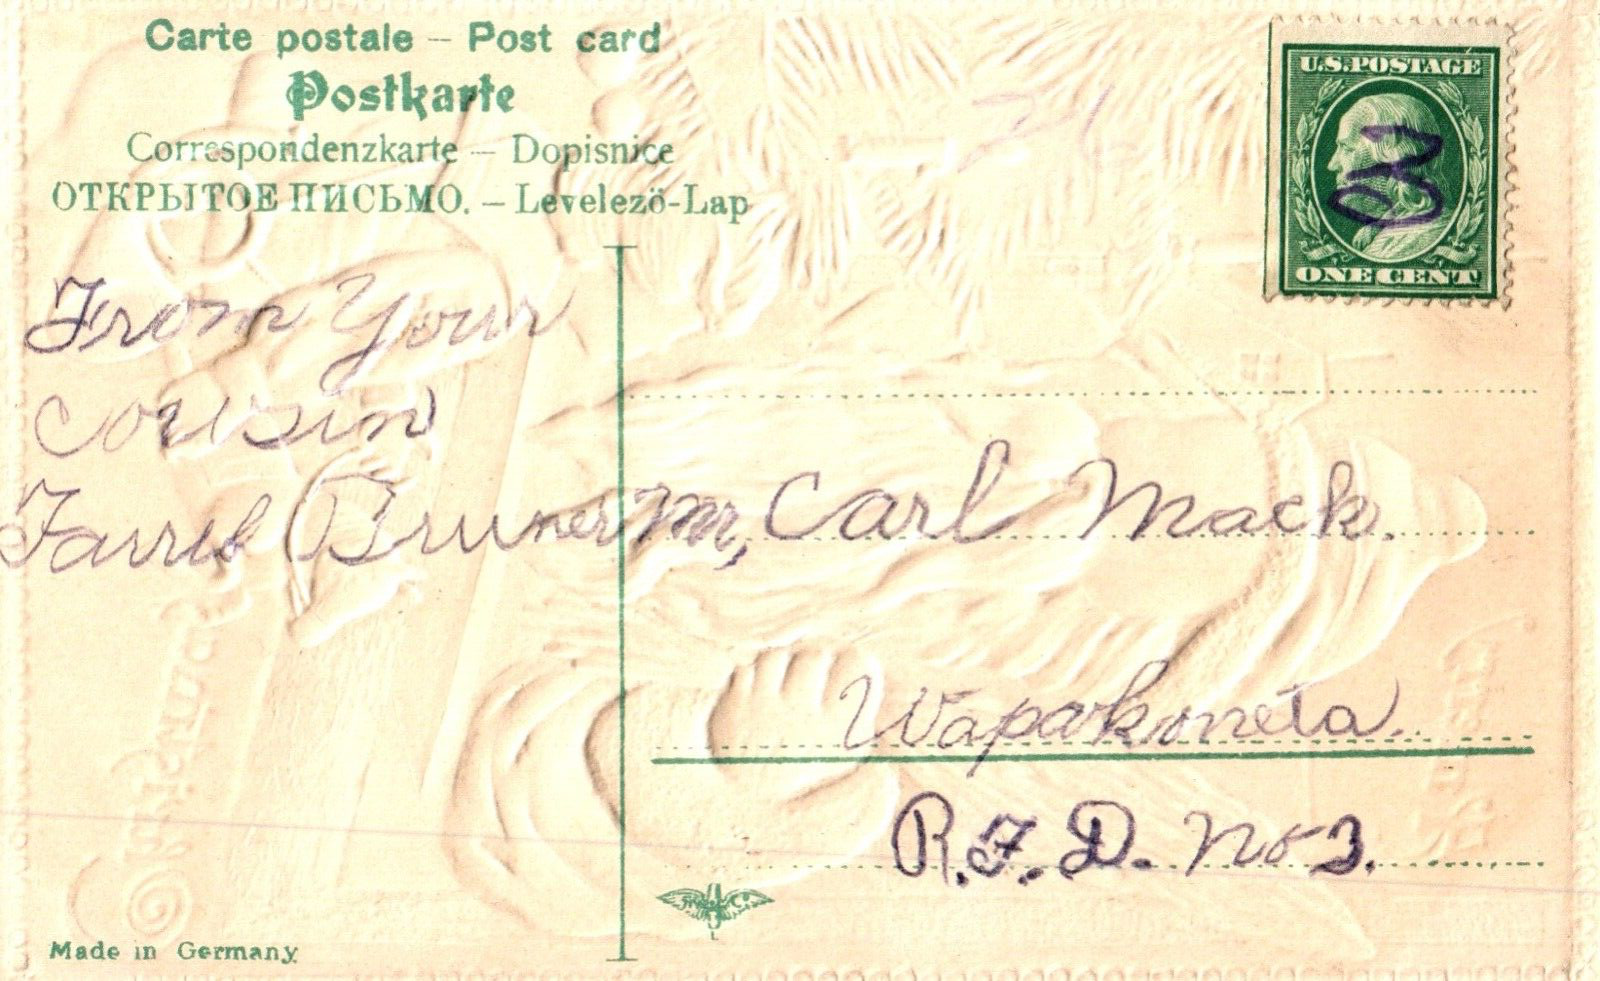 Carte postale – Post card
Postkarte
Correspondenzkarte – Dopisnice
ОТКРЫТОЕ ПИСЬМО. – Levelezö-Lap
U.S.POSTAGE
ONE CENT
From Your
cousin
Bruner
Mr, Carl Mack.
Wapakoneta.
R.F.D. No 3.
Made in Germany